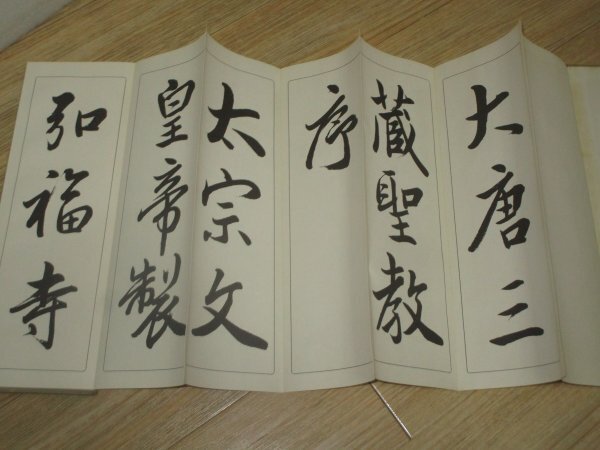 大唐三
蔵聖教
序
太宗文
皇帝製
弘福寺